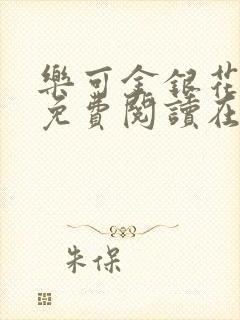 樂可金銀花
免費閱讀在
朱保